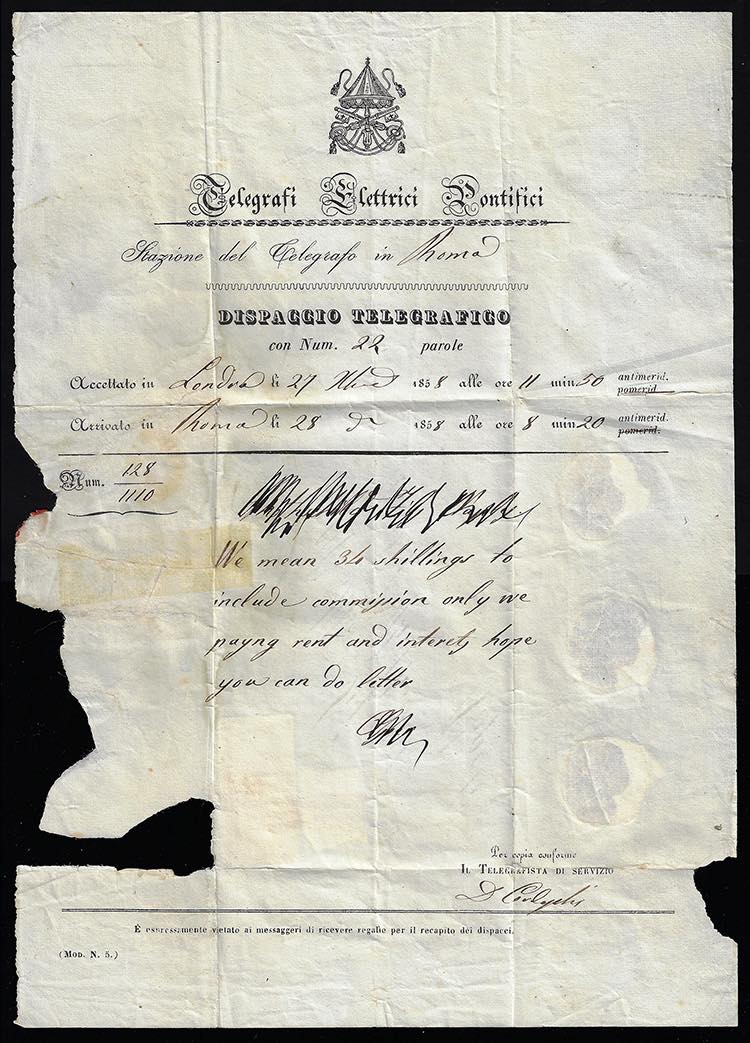 Telegrafi Elettrici Pontifici
Stazione del Telegrafo in Roma
DISPACCIO TELEGRAFICO
con Num. 22 parole
Accettato in Londra li 27 1858 alle ore 11 min 50 antimerid. pomerid.
Arrivato in Roma li 28 1858 alle ore 8 min 20 antimerid. pomerid.
Num. 128
1110
We mean 34 shillings to
include commission only we
payng rent and interet, hope
you can do letter
Per copia conforme
IL TELEGRAFISTA DI SERVIZIO
È espressamente vietato ai messaggeri di ricevere regalie per il recapito dei dispacci.
(MOD. N. 5.)